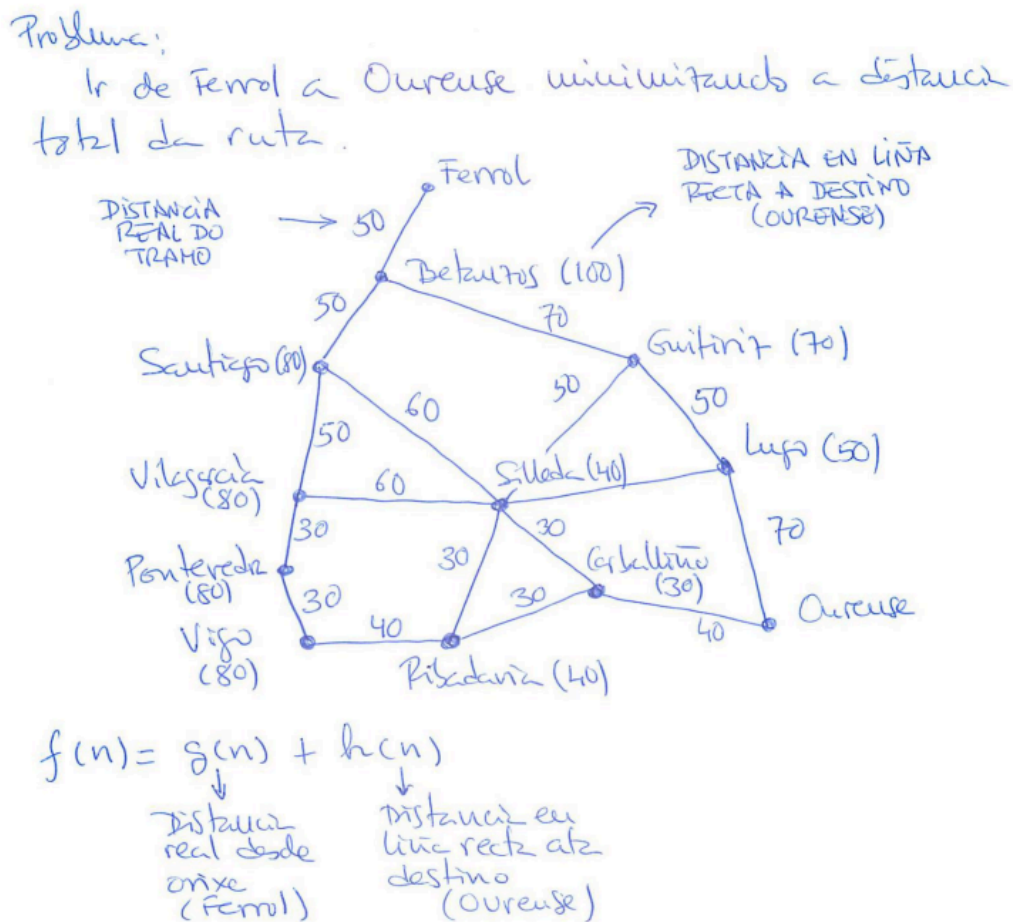 Problema:
Ir de Ferrol a Ourense minimizando a distancia
total da ruta.
Ferrol
DISTANCIA
REAL DO
TRAMO
50
DISTANZIA EN LIÑA
RECTA A DESTINO
(OURENSE)
Betanzos (100)
50
70
Santiago (80)
Guitiriz (70)
60
50
50
50
Lugo (50)
Vilagarcía
(80)
60
Silleda (40)
30
30
30
70
Pontevedra
(80)
Carballiño
(30)
30
30
Ourense
Vigo
(80)
40
40
Ribadavia (40)
f(n) = g(n) + h(n)
Distancia
real desde
orixe
(Ferrol)
Distancia en
liña recta ata
destino
(Ourense)